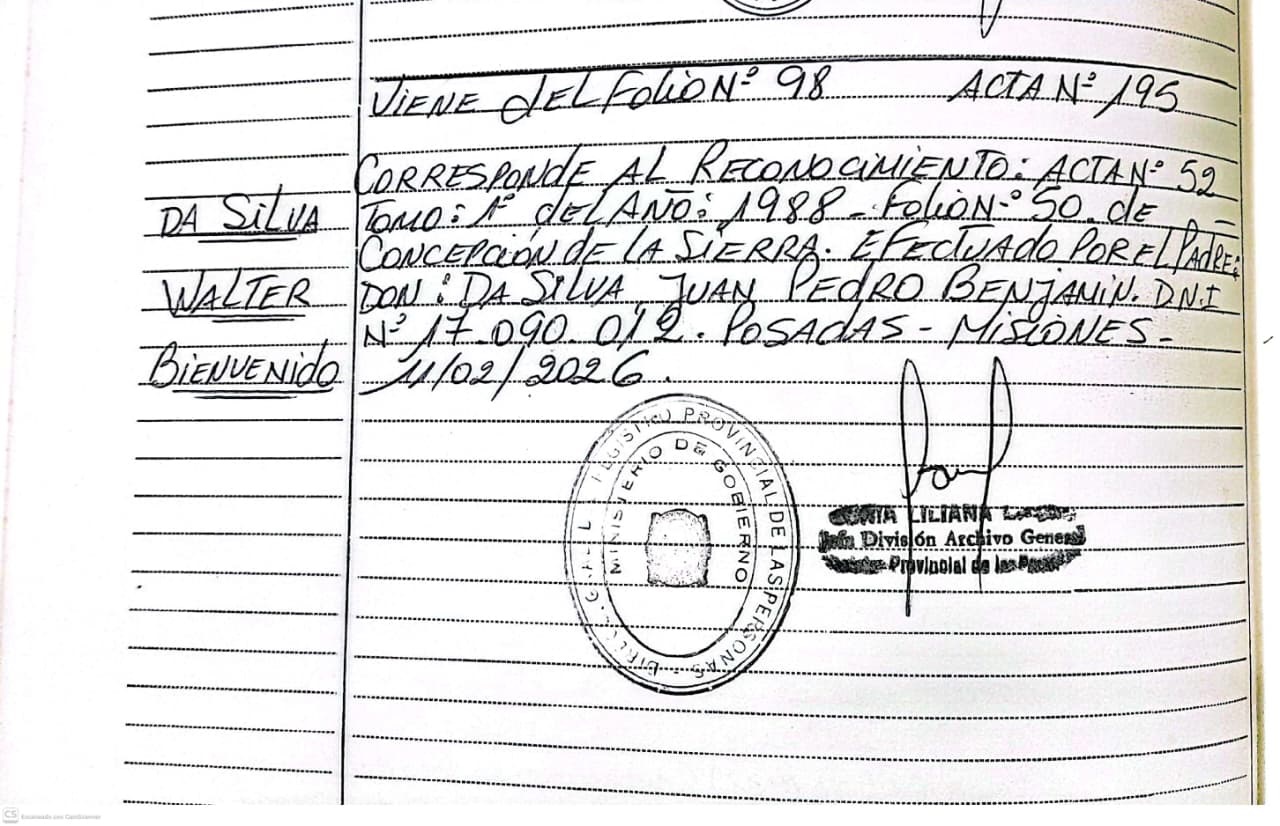 VIENE del Folio Nº 98 ACTA Nº 195
CORRESPONDE AL RECONOCIMIENTO: ACTA Nº 52
TOMO: 1º del AÑO: 1988 - Folio Nº 50. de
CONCEPCIÓN de LA SIERRA. EFECTUADO POR El PAdRE:
DON: DA SILVA, JUAN PEDRO BENJAMIN. D.N.I
Nº 17.090.012. POSADAS - MISIONES -
11/02/2026.
DA SILVA
WALTER
BIENVENIdO
REGISTRO PROVINCIAL DE LAS PERSONAS
MINISTERIO DE GOBIERNO
LILIANA
División Archivo General
Provincial de las
CS Escaneado con CamScanner